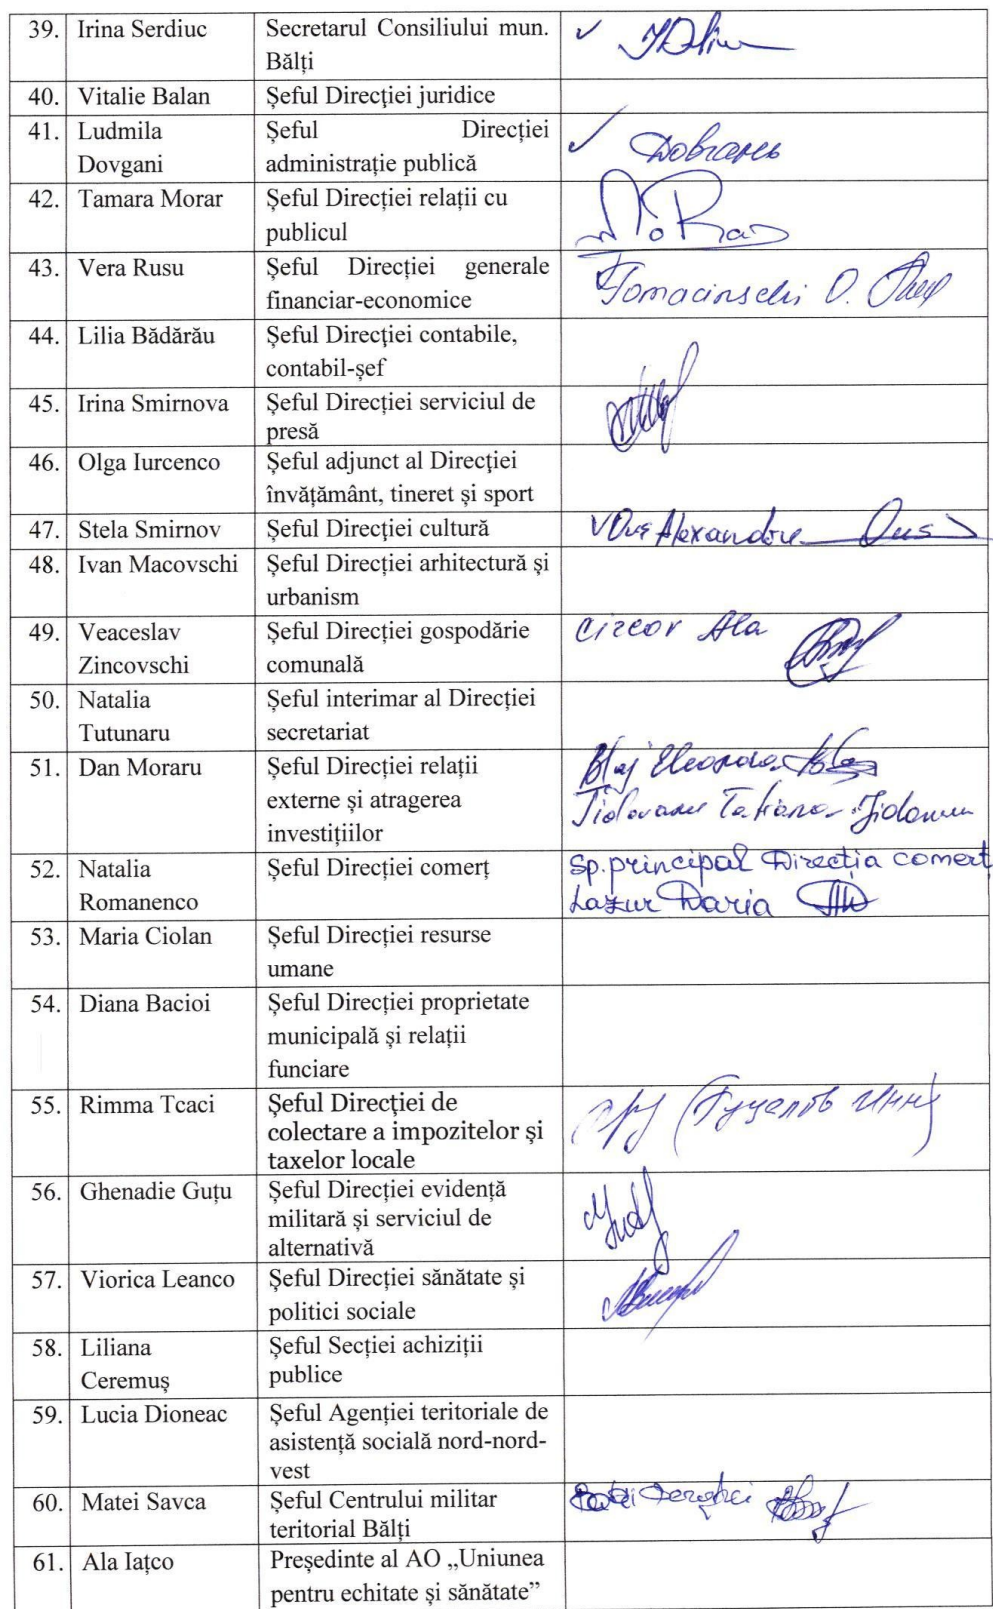 39. Irina Serdiuc Secretarul Consiliului mun. ✓
Bălți
40. Vitalie Balan Șeful Direcției juridice
41. Ludmila Șeful Direcției ✓
Dovgani administrație publică
42. Tamara Morar Șeful Direcției relații cu
publicul
43. Vera Rusu Șeful Direcției generale
financiar-economice Tomacinschi O.
44. Lilia Bădărău Șeful Direcției contabile,
contabil-șef
45. Irina Smirnova Șeful Direcției serviciul de
presă
46. Olga Iurcenco Șeful adjunct al Direcției
învățământ, tineret și sport
47. Stela Smirnov Șeful Direcției cultură
48. Ivan Macovschi Șeful Direcției arhitectură și
urbanism
49. Veaceslav Șeful Direcției gospodărie Ala
Zincovschi comunală
50. Natalia Șeful interimar al Direcției
Tutunaru secretariat
51. Dan Moraru Șeful Direcției relații Blaj Eleonora
externe și atragerea Tatiana
investițiilor
52. Natalia Șeful Direcției comerț Sp. principal Direcția comerț
Romanenco Lazur Daria
53. Maria Ciolan Șeful Direcției resurse
umane
54. Diana Bacioi Șeful Direcției proprietate
municipală și relații
funciare
55. Rimma Tcaci Șeful Direcției de
colectare a impozitelor și
taxelor locale
56. Ghenadie Guțu Șeful Direcției evidență
militară și serviciul de
alternativă
57. Viorica Leanco Șeful Direcției sănătate și
politici sociale
58. Liliana Șeful Secției achiziții
Ceremuș publice
59. Lucia Dioneac Șeful Agenției teritoriale de
asistență socială nord-nord-
vest
60. Matei Savca Șeful Centrului militar
teritorial Bălți
61. Ala Iațco Președinte al AO „Uniunea
pentru echitate și sănătate”